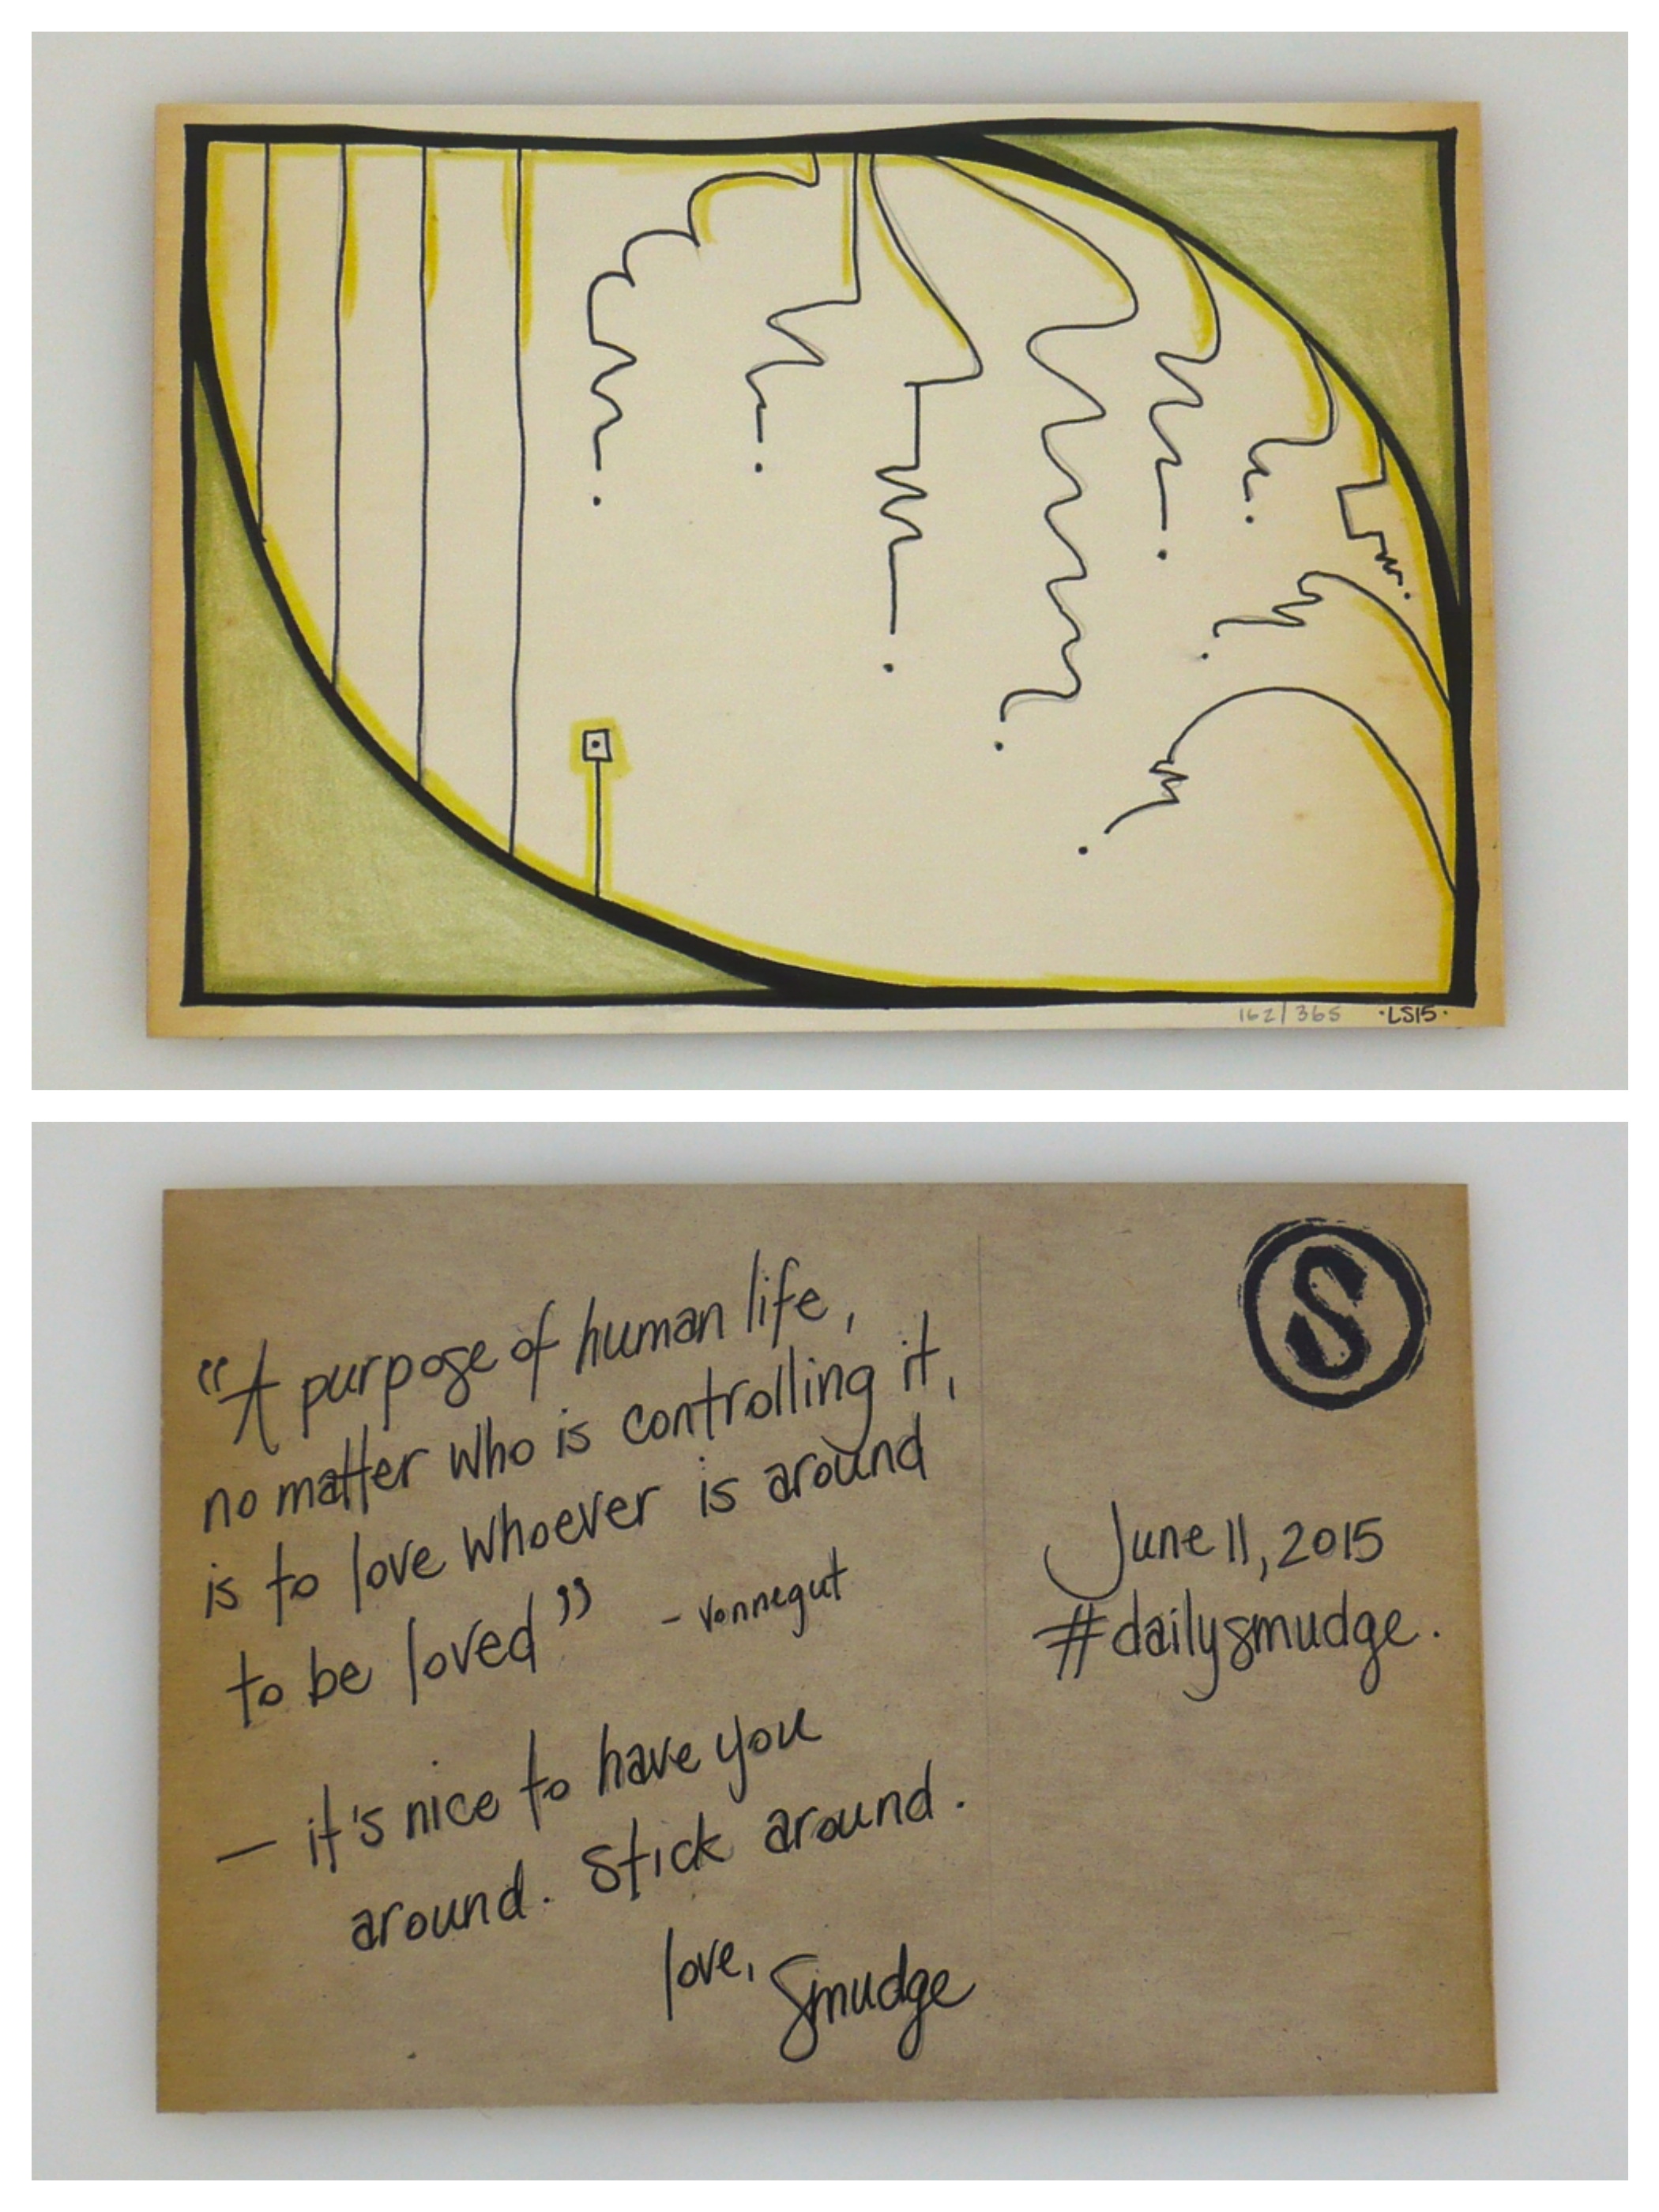 162/365 ·LS15·
S
"A purpose of human life,
no matter who is controlling it,
is to love whoever is around
to be loved" - vonnegut
— it's nice to have you
around. Stick around.
love, Smudge
June 11, 2015
#dailysmudge.